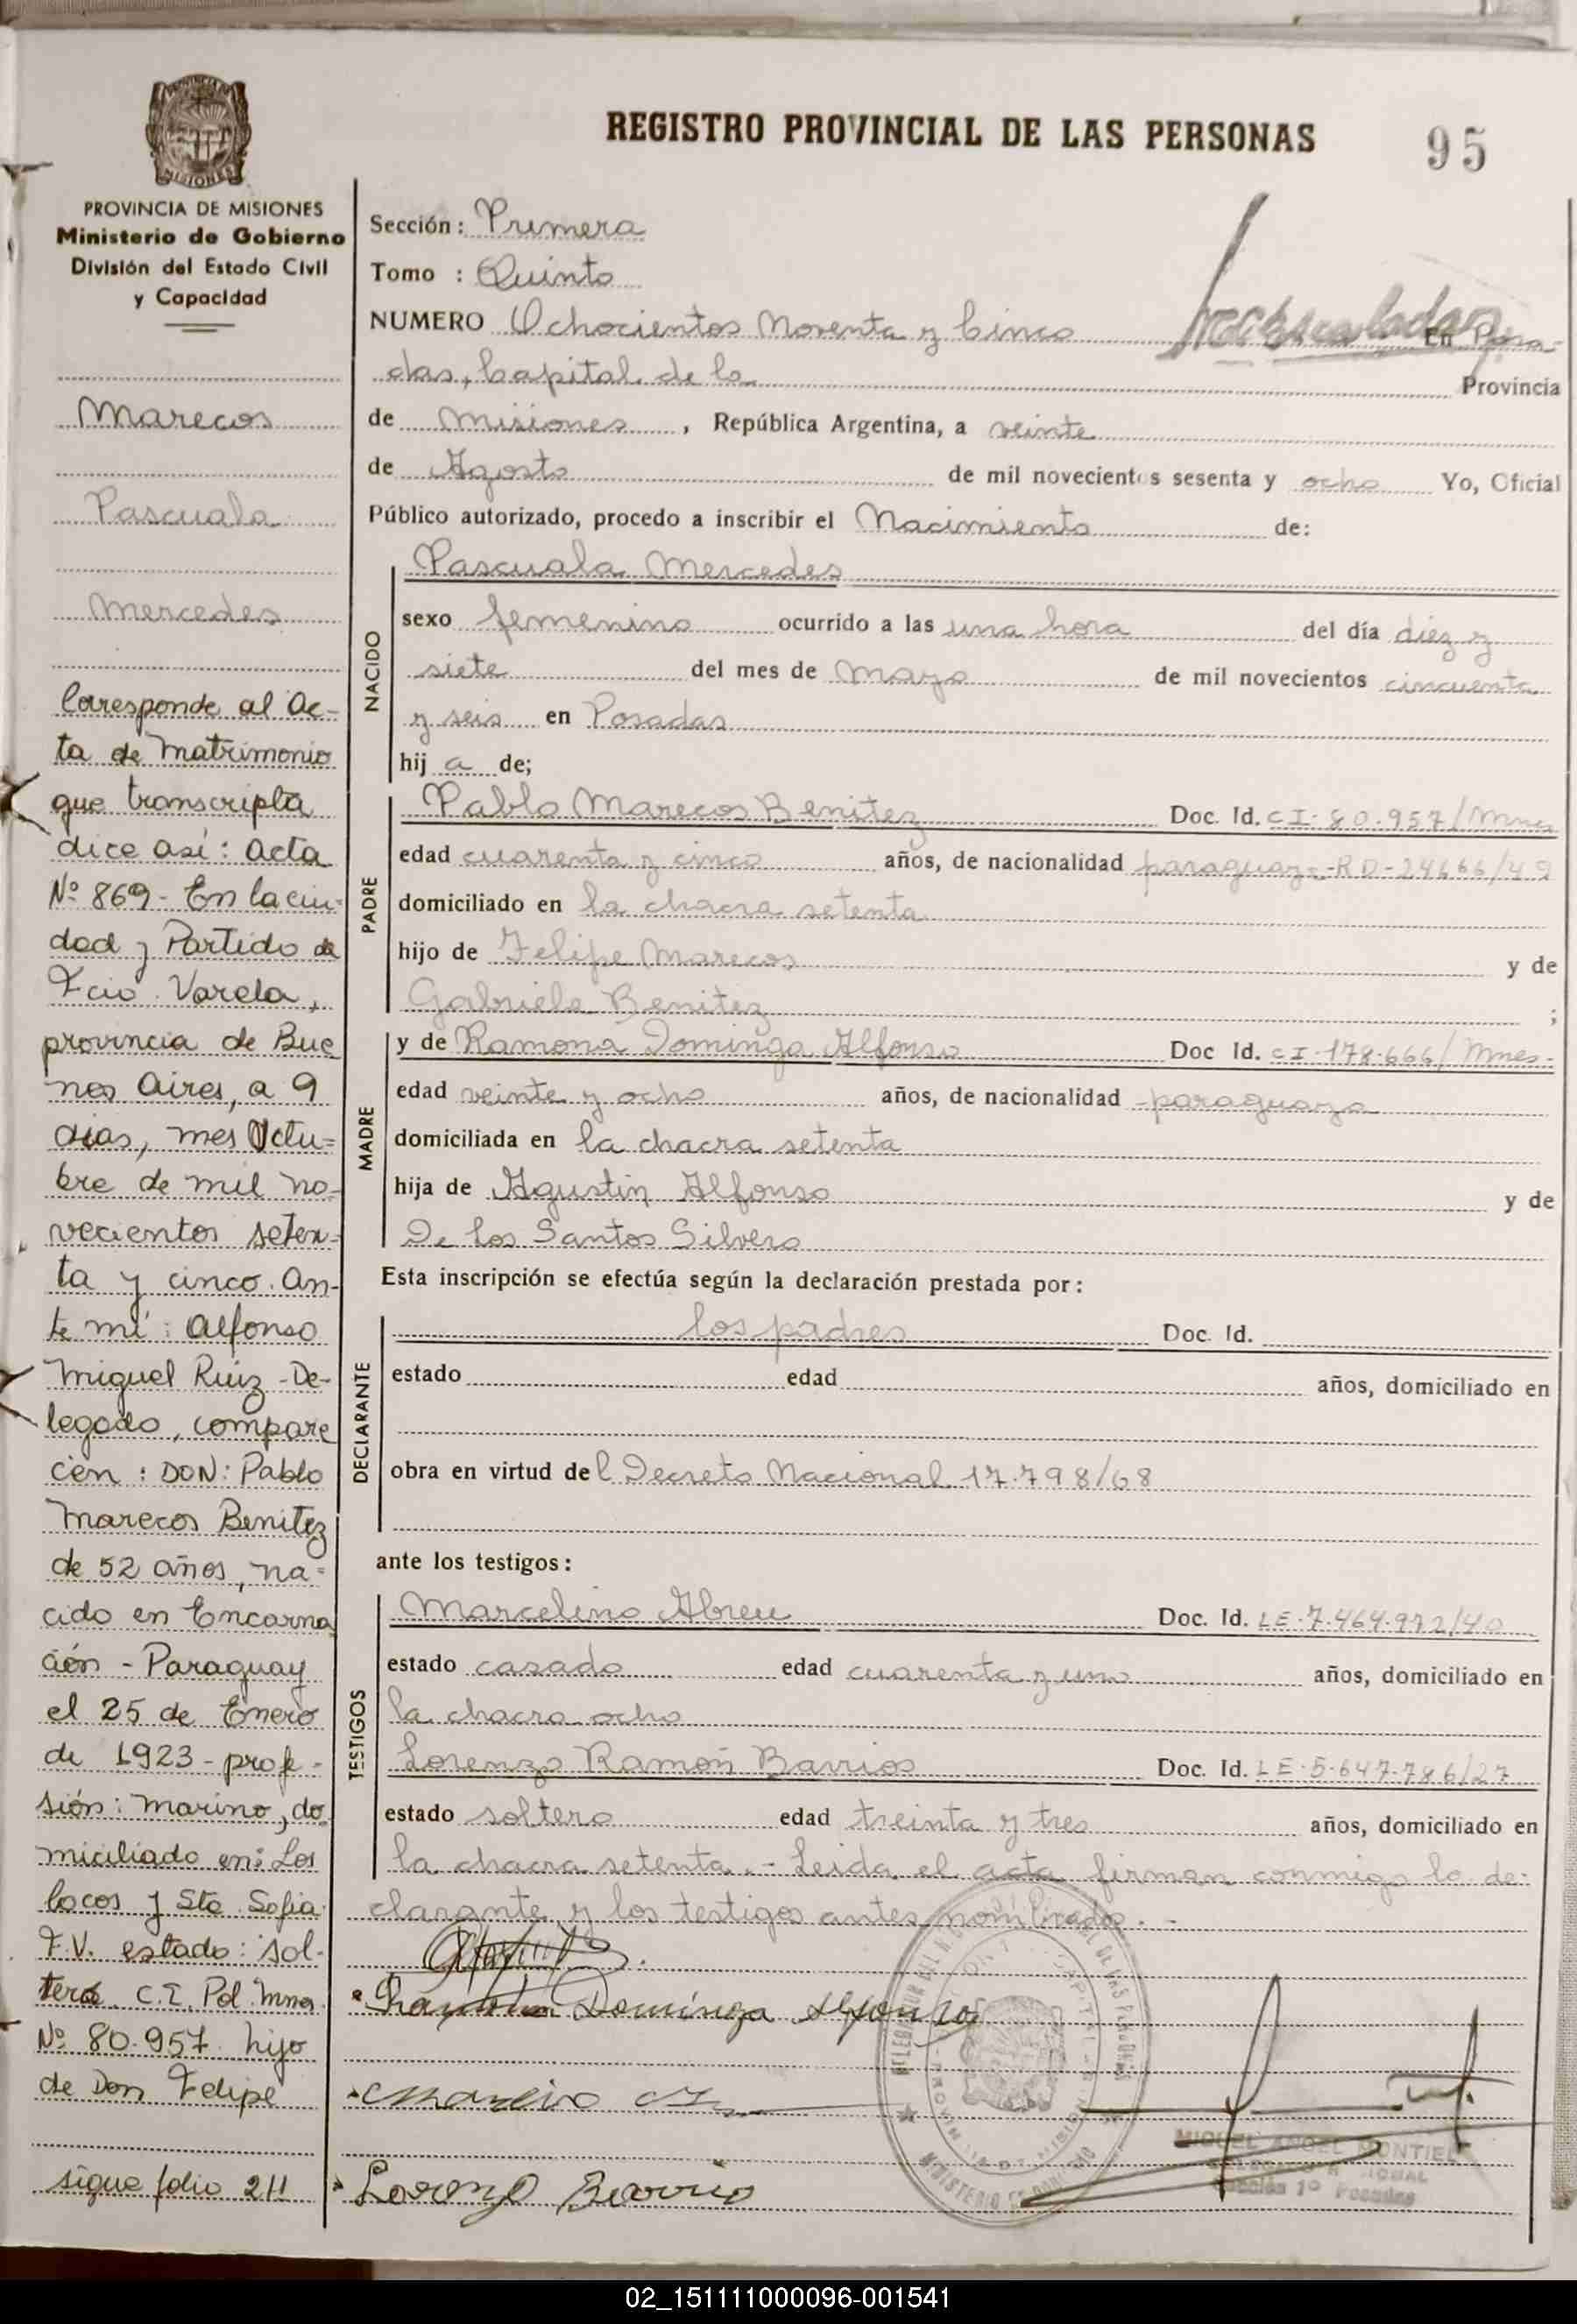 REGISTRO PROVINCIAL DE LAS PERSONAS
95
PROVINCIA DE MISIONES
Ministerio de Gobierno
División del Estado Civil
y Capacidad
Marecos
Pascuala
Mercedes
Corresponde al Ac-
ta de Matrimonio
que transcripta
dice así: Acta
Nº 869 - En la ciu-
dad y Partido de
Fcio. Varela,
provincia de Bue
nos Aires, a 9
dias, mes Octu=
bre de mil no-
vecientos seten=
ta y cinco. An-
te mí: Alfonso
Miguel Ruiz - De-
legado, compare
cen: DON: Pablo
Marecos Benitez
de 52 años, na=
cido en Encarna
ción - Paraguay
el 25 de Enero
de 1923 - profe-
sión: marino, do
miciliado en: Los
Cocos y Sta Sofia
F.V. estado: sol-
tero. C.I. Pol. Mnes.
Nº 80.957. hijo
de Don Felipe
sigue folio 211
Sección: Primera
Tomo : Quinto
NUMERO Ochocientos Noventa y Cinco En Posa-
das, Capital de la Provincia
de Misiones, República Argentina, a veinte
de Agosto de mil novecientos sesenta y ocho Yo, Oficial
Público autorizado, procedo a inscribir el Nacimiento de:
NACIDO
Pascuala Mercedes
sexo femenino ocurrido a las una hora del día diez y
siete del mes de Mayo de mil novecientos cincuenta
y seis en Posadas
hij a de;
PADRE
Pablo Marecos Benitez Doc. Id. C I. 80.957/Mnes
edad cuarenta y cinco años, de nacionalidad paraguaya-RD-24666/49
domiciliado en la chacra setenta
hijo de Felipe Marecos y de
Gabriela Benitez ;
MADRE
y de Ramona Dominga Alfonso Doc Id. C I. 178.666/Mnes-
edad veinte y ocho años, de nacionalidad paraguaya
domiciliada en la chacra setenta
hija de Agustin Alfonso y de
De los Santos Silvero
Esta inscripción se efectúa según la declaración prestada por:
DECLARANTE
los padres Doc. Id.
estado edad años, domiciliado en
obra en virtud del Decreto Nacional 17.798/68
ante los testigos:
TESTIGOS
Marcelino Abreu Doc. Id. LE.7.464.972/40
estado casado edad cuarenta y uno años, domiciliado en
la chacra ocho
Lorenzo Ramón Barrios Doc. Id. LE.5.647.786/27
estado soltero edad treinta y tres años, domiciliado en
la chacra setenta.- Leida el acta firman conmigo la de-
clarante y los testigos antes nombrados.-
Dominga Alfonso
Lorenzo Barrio
MIGUEL ANGEL MONTIEL
Sección 1º Posadas
02_151111000096-001541